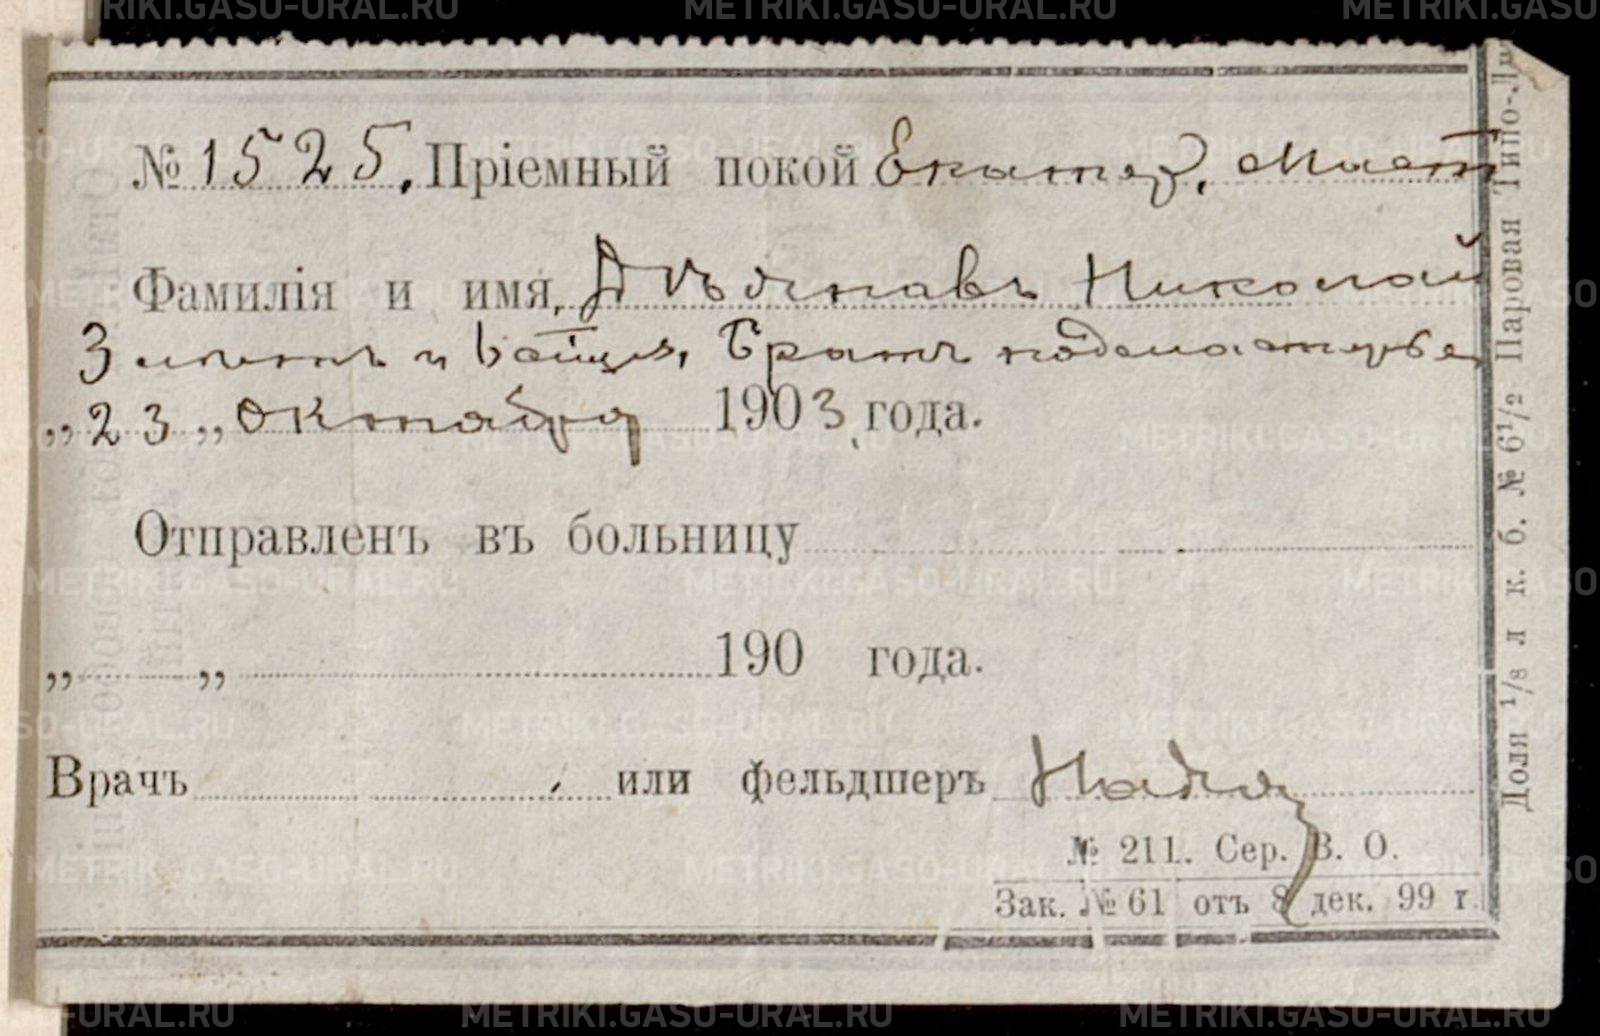 № 1525. Пріемный покой Екатер. Маст
Фамилія и имя, Николай
3 лѣтъ и Братъ подмастерья
„ 23 „ октября 1903 года.
Отправленъ въ больницу
„ „ 190 года.
Врачъ или фельдшеръ
№ 211. Сер. В. О.
Зак. № 61 отъ 8 дек. 99 г
Доля 1/8 л к. б. № 6 1/2 Паровая Типо-Ли
METRIKI.GASO-URAL.RU